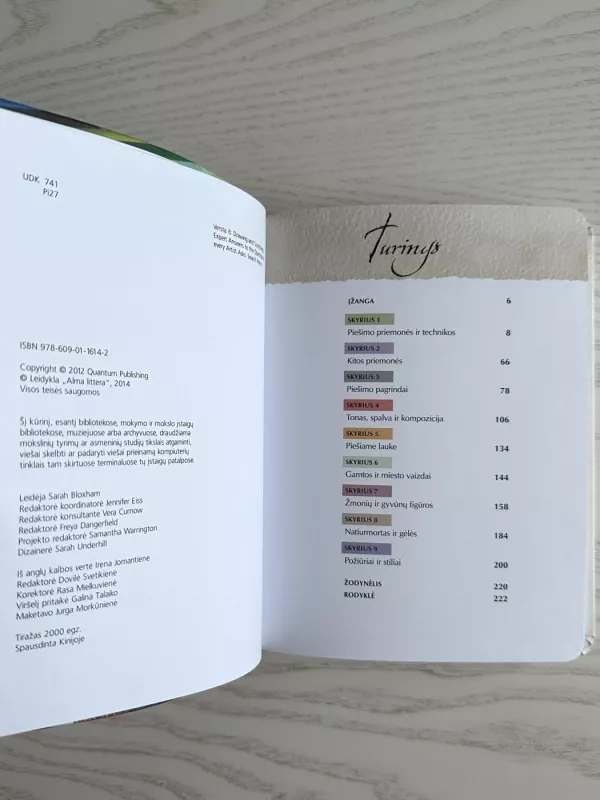 UDK 741
Pi27
Versta iš: Drawing and
Expert Answers to the
every Artist
ISBN 978-609-01-1614-2
Copyright © 2012 Quantum Publishing
© Leidykla „Alma littera“, 2014
Visos teisės saugomos
Šį kūrinį, esantį bibliotekose, mokymo ir mokslo įstaigų
bibliotekose, muziejuose arba archyvuose, draudžiama
mokslinių tyrimų ar asmeninių studijų tikslais atgaminti,
viešai skelbti ar padaryti viešai prieinamą kompiuterių
tinklais tam skirtuose terminaluose tų įstaigų patalpose
Leidėja Sarah Bloxham
Redaktorė koordinatorė Jennifer Eiss
Redaktorė konsultantė Vera Curnow
Redaktorė Freya Dangerfield
Projekto redaktorė Samantha Warrington
Dizainerė Sarah Underhill
Iš anglų kalbos vertė Irena Jomantienė
Redaktorė Dovilė Svetikienė
Korektorė Rasa Mielkuvienė
Viršelį pritaikė Galina Talaiko
Maketavo Jurga Morkūnienė
Tiražas 2000 egz.
Spausdinta Kinijoje
Turinys
ĮŽANGA 6
SKYRIUS 1
Piešimo priemonės ir technikos 8
SKYRIUS 2
Kitos priemonės 66
SKYRIUS 3
Piešimo pagrindai 78
SKYRIUS 4
Tonas, spalva ir kompozicija 106
SKYRIUS 5
Piešiame lauke 134
SKYRIUS 6
Gamtos ir miesto vaizdai 144
SKYRIUS 7
Žmonių ir gyvūnų figūros 158
SKYRIUS 8
Natiurmortas ir gėlės 184
SKYRIUS 9
Požiūriai ir stiliai 200
ŽODYNĖLIS 220
RODYKLĖ 222